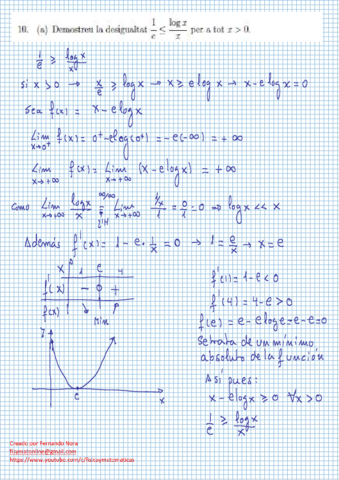 10. (a) Demostreu la desigualtat 1/e ≤ log x/x per a tot x > 0.
1/e ≥ log x/x
Si x > 0 → x/e ≥ log x → x ≥ e log x → x - e log x = 0
Sea f(x) = x - e log x
Lim x→0⁺ f(x) = 0⁺ - e log(0⁺) = -e(-∞) = +∞
Lim x→+∞ f(x) = Lim x→+∞ (x - e log x) = +∞
Como Lim x→+∞ log x/x = ∞/∞ L'H Lim x→+∞ 1/x/1 = 0/1 = 0 → log x << x
Además f'(x) = 1 - e · 1/x = 0 → 1 = e/x → x = e
x 1 e 4
f'(x) - 0 +
f(x) ↘ ↗
Min
f'(1) = 1 - e < 0
f'(4) = 4 - e > 0
f(e) = e - e log e = e - e = 0
Se trata de un mínimo
absoluto de la función
Así pues:
x - e log x ≥ 0 ∀x > 0
1/e ≥ log x/x
y
e
x
Creado por Fernando Nora
fitomatonline@gmail.com